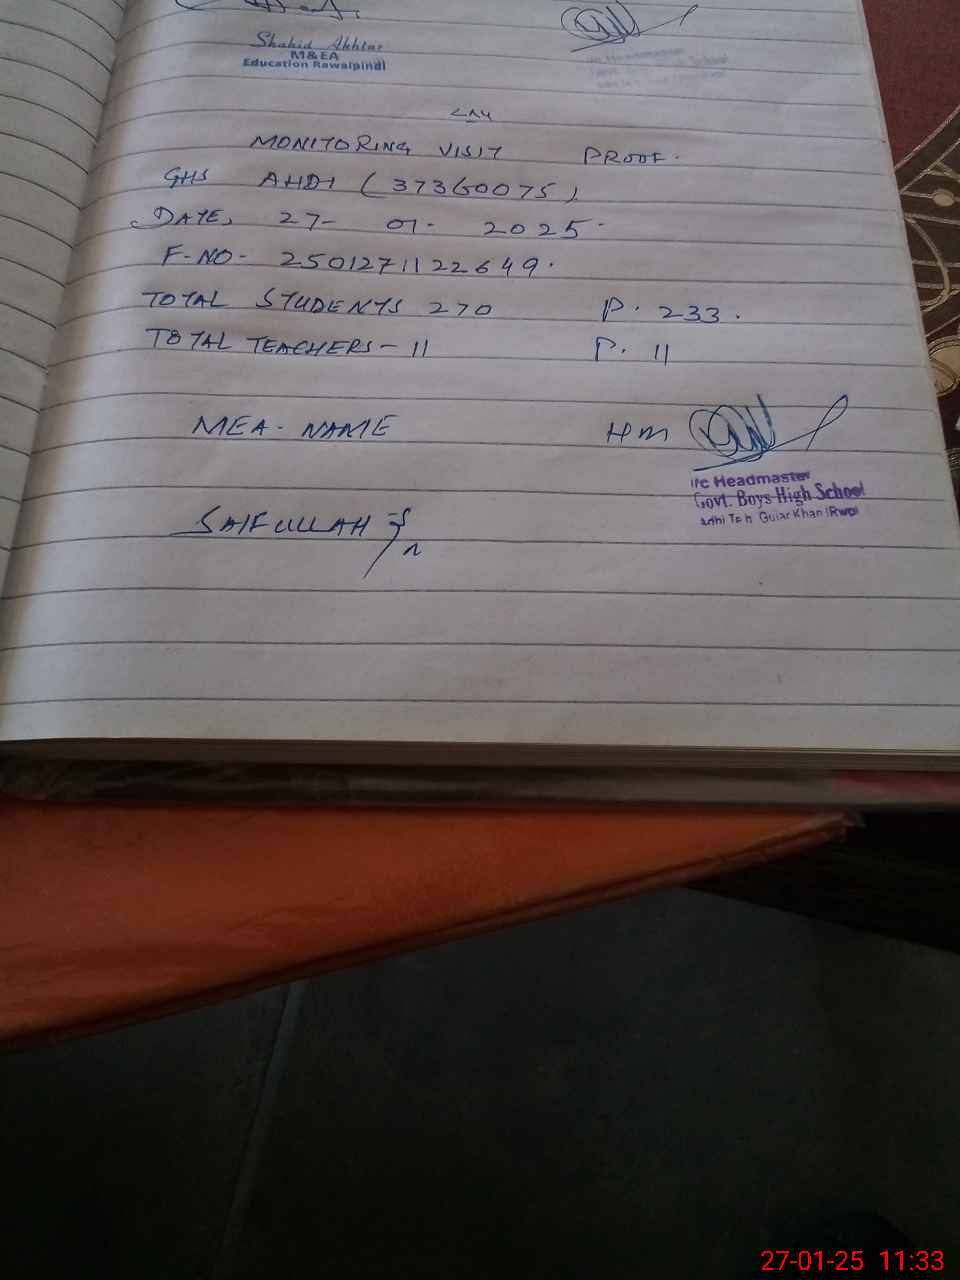 Shahid Akhtar
M&EA
Education Rawalpindi
MONITORING VISIT PROOF.
GHS AHDI (37360075)
DATE, 27- 01- 2025.
F-NO- 2501271122649.
TOTAL STUDENTS 270 P. 233.
TOTAL TEACHERS- 11 P. 11
MEA- NAME HM
I/c Headmaster
Govt. Boys High School
Adhi Teh Gujar Khan (Rwp)
SAIFULLAH
27-01-25 11:33